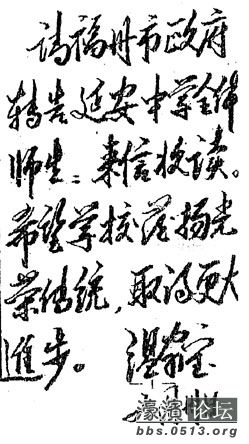 请福州市政府
转告延安中学全体
师生：来信收读。
希望学校发扬光
荣传统，取得更大
進步。温家宝
濠濱论坛
bbs.0513.org